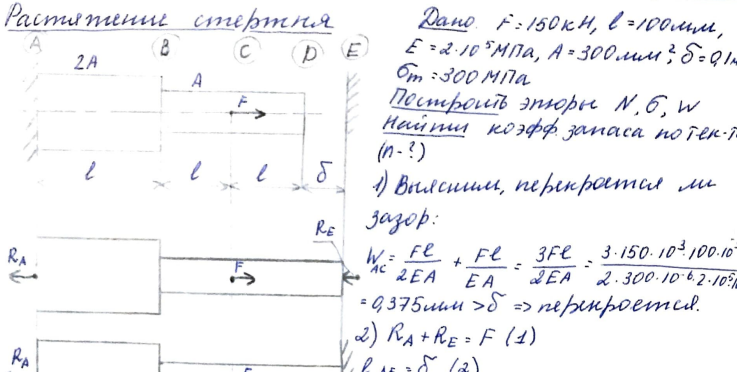 Растяжение стержня
A B C D E
2A
A
F
l l l δ
R_E
R_A
F
R_A
Дано. F=150кН, l=100мм,
E=2·10⁵МПа, A=300мм², δ=0,1
σт=300МПа
Построить эпюры N, σ, W
Найти коэфф. запаса по тек-т
(n-?)
1) Выясним, перекроется ли
зазор:
W_AC = Fl/2EA + Fl/EA = 3Fl/2EA = 3·150·10³·100·10⁻/2·300·10⁻⁶·2·10⁵
=0,375мм >δ => перекроется.
2) R_A + R_E = F (1)
= δ (2)